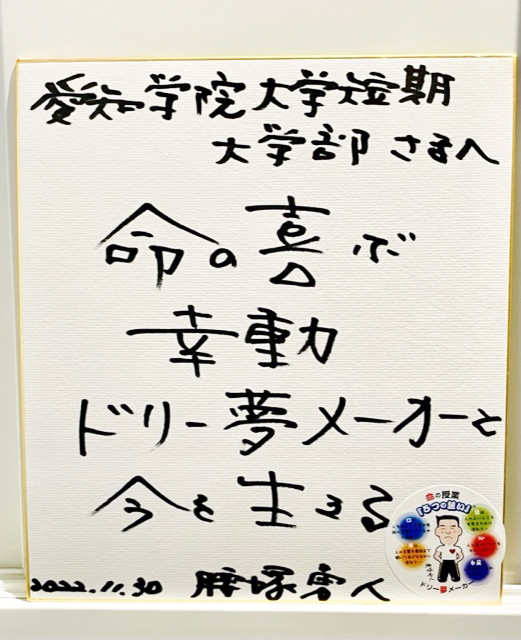 愛知学院大学短期
大学部さまへ
命の喜ぶ
幸動
ドリー夢メーカーと
今を生きる
2022.11.30 腰塚勇人
命の授業
『5つの誓い』
ドリー夢メーカー